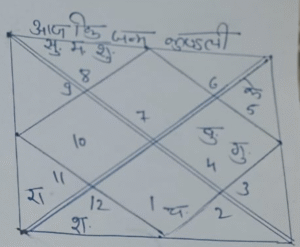 आज कि जन्म कुण्डली
सु. मं शु.
8
9
6
के
5
7
10
बु. गु
4
11
रा
3
12
1 च.
2
श.